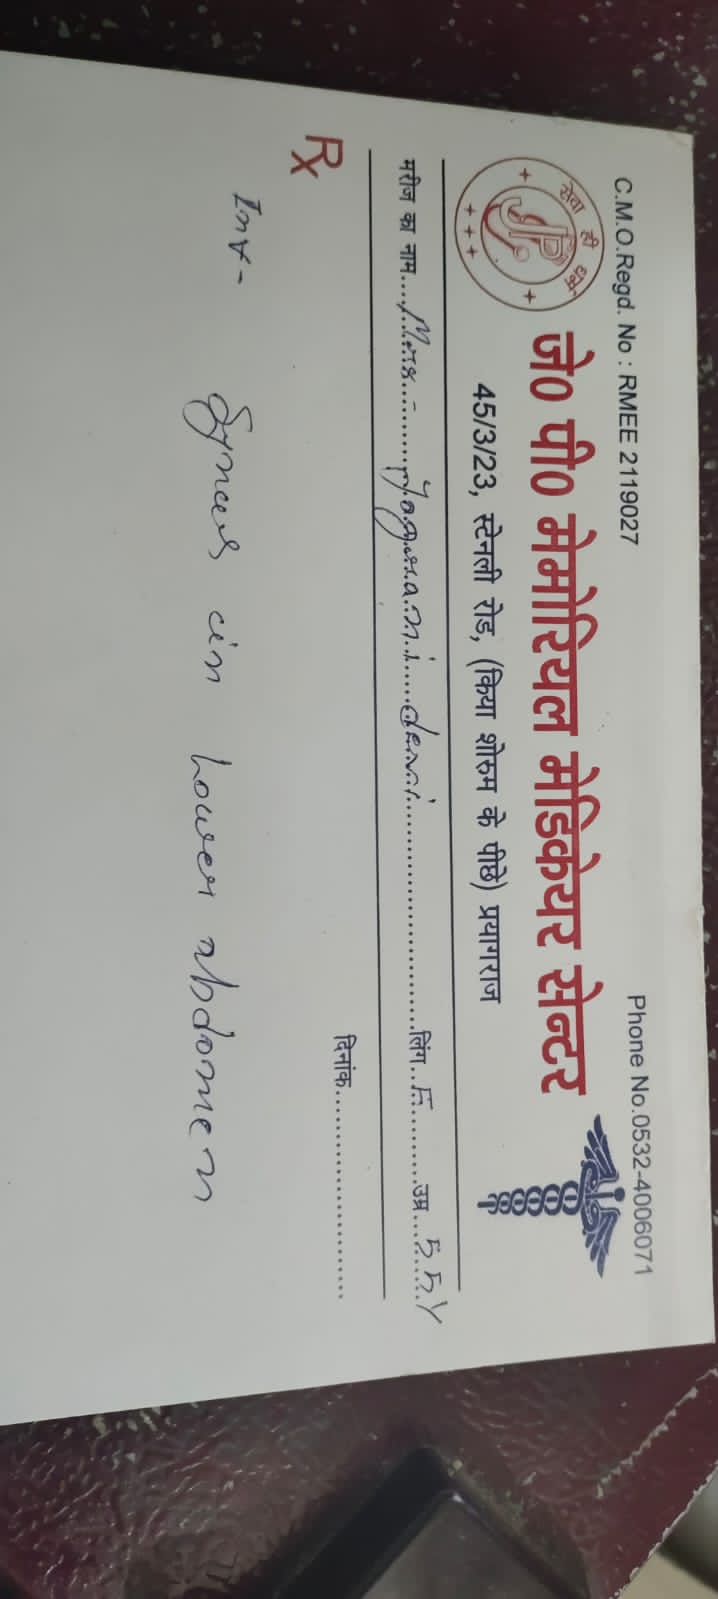 C.M.O.Regd. No : RMEE 2119027 Phone No.0532-4006071
सेवा ही धर्म
JP
जे० पी० मेमोरियल मेडिकेयर सेन्टर
45/3/23, स्टेनली रोड, (किया शोरुम के पीछे) प्रयागराज
मरीज का नाम....Mrs.-.........devi.........लिंग..F.........उम्र...55Y
Rx दिनांक.........................
Inv-
in Lower abdomen